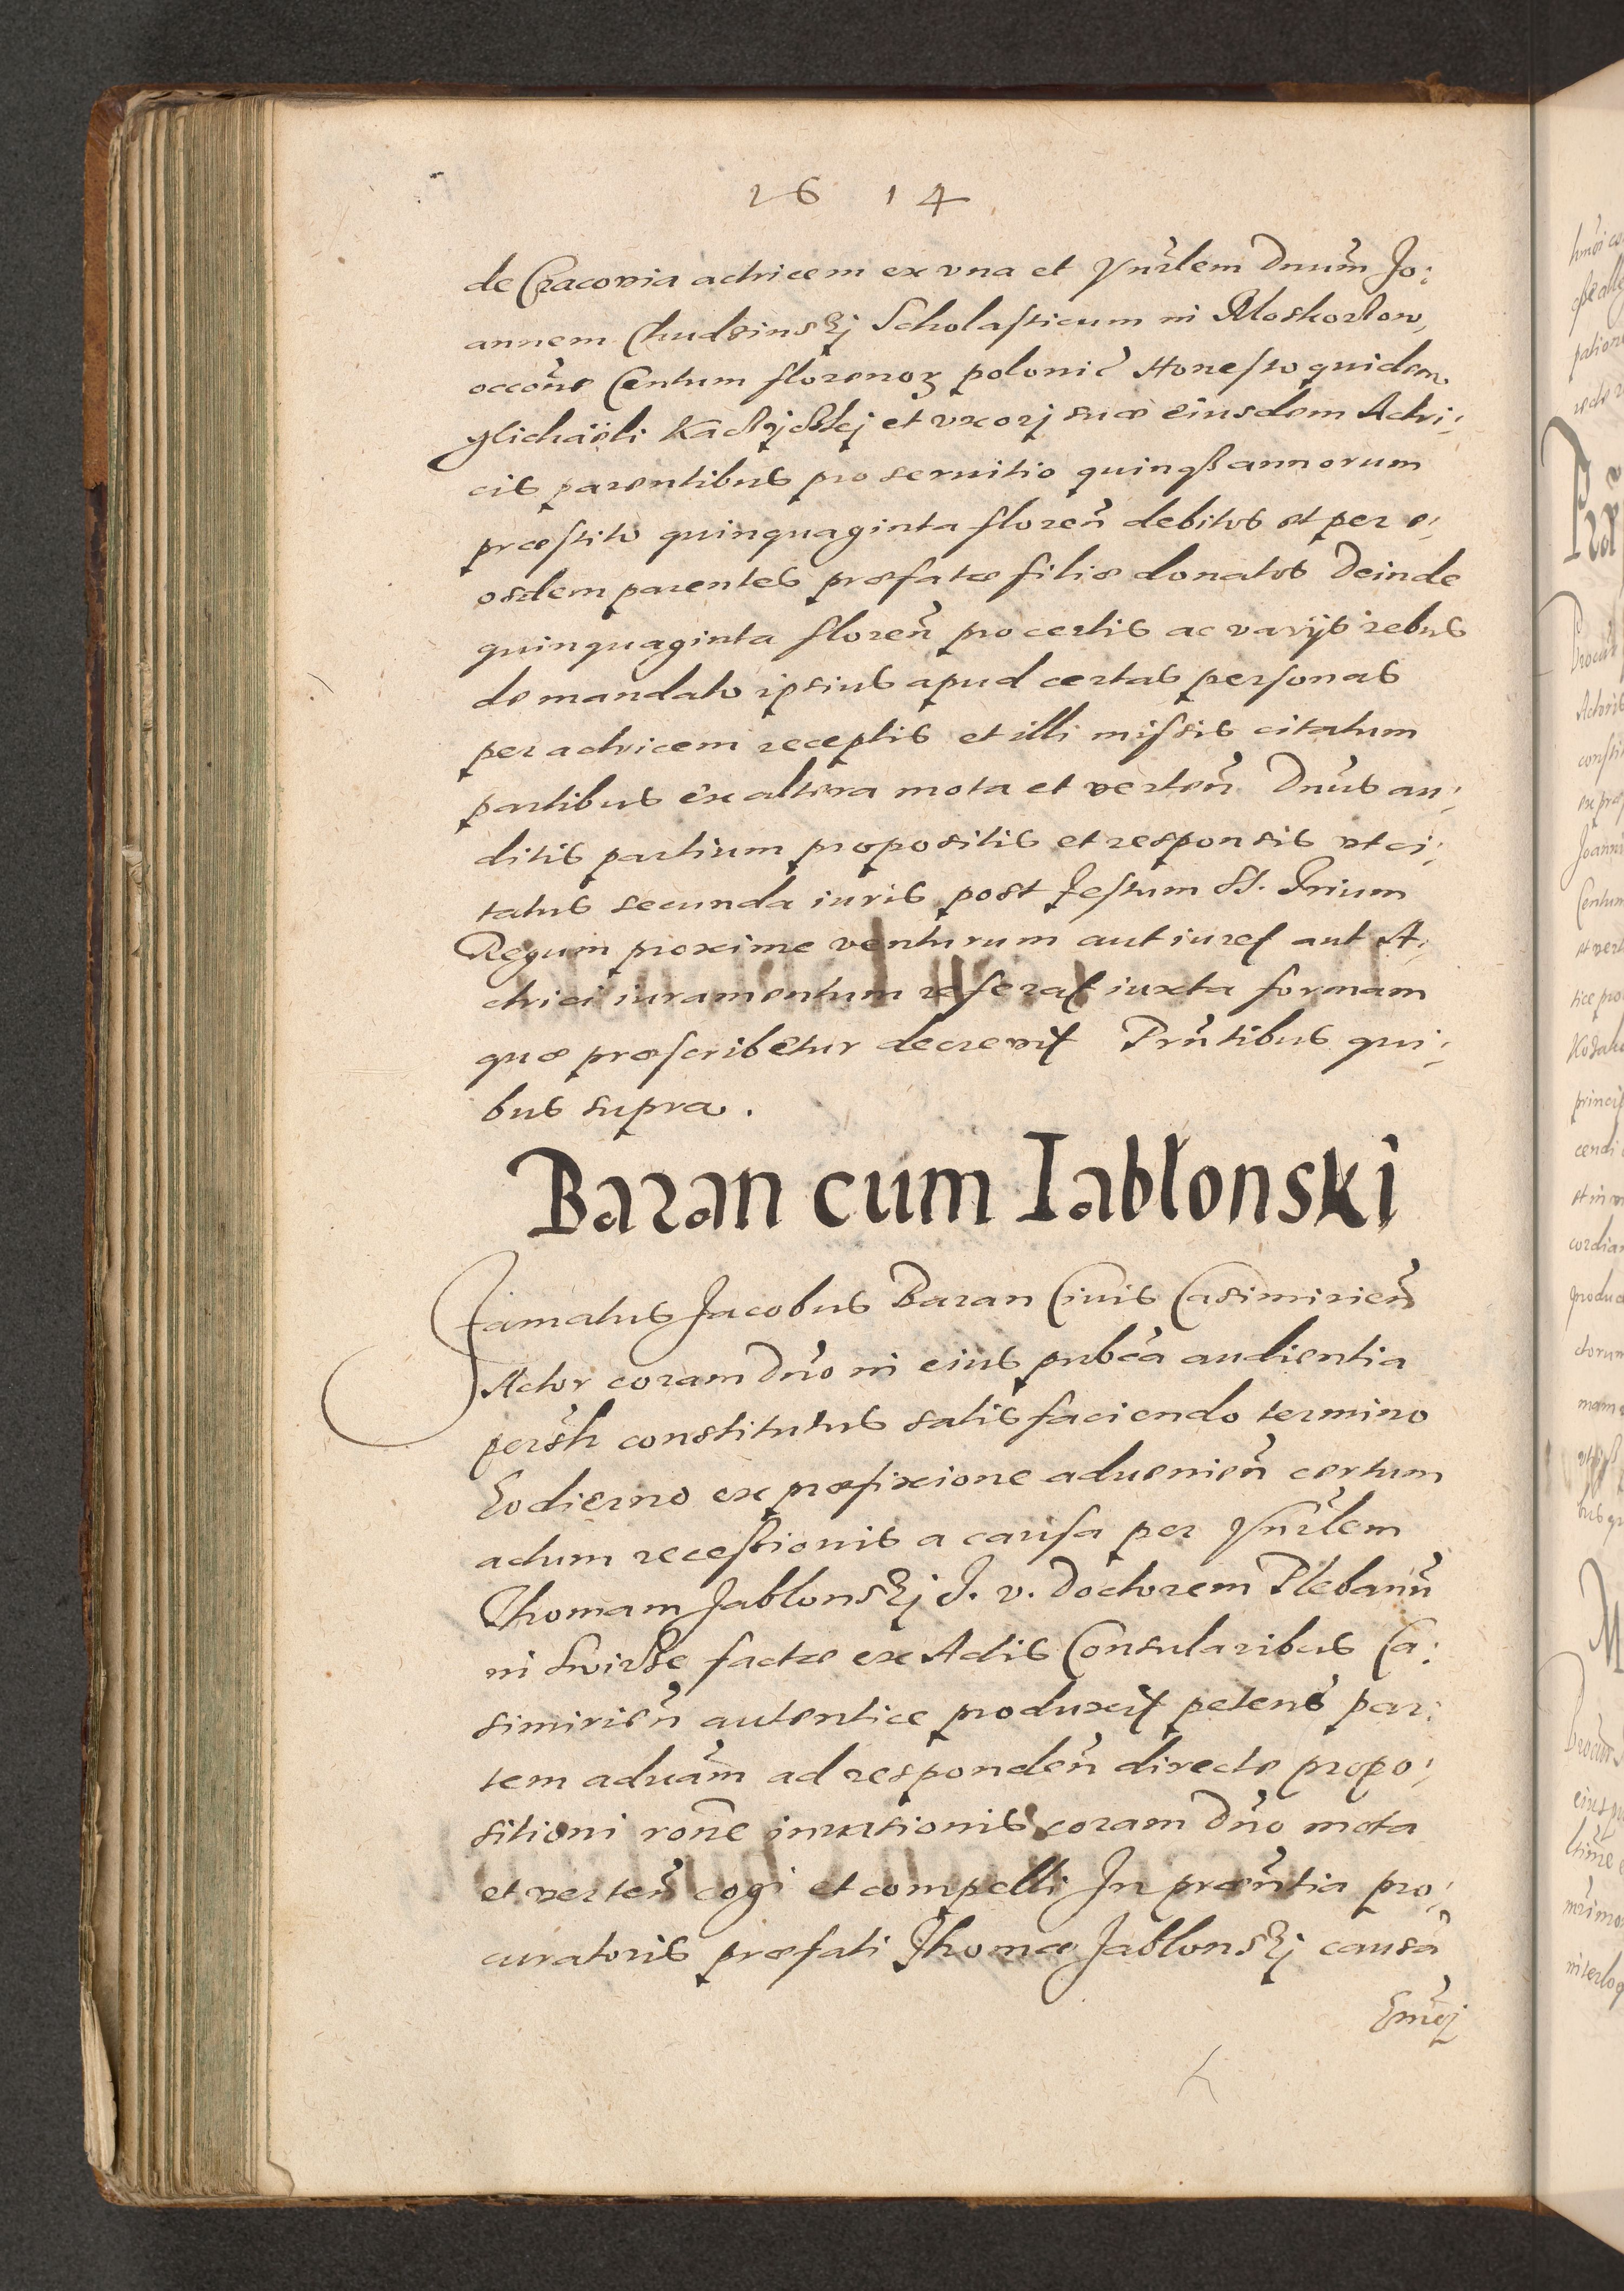 16 14
de Cracovia actricem ex vna et Vnrlem Dnum Jo:
annem Chudzinskj Scholasticum in Moskorzow
occone Centum florenorz polonic Honesto quidem
Michaeli et vxorj suæ eiusdem Actri:
cis parentibus pro seruitio quinqß annorum
præstito quinquaginta floren debitos et per e:
osdem parentes præfatæ filiæ donatos Deinde
quinquaginta floren pro certis ac varijs rebus
de mandato ipsius apud certas personas
per actricem receptis et illi missis citatum
partibus ex altera mota et verten Dnus au:
ditis partium propositis et responsis vt ci:
tatus secunda iuris post festum SS. Trium
Regum proxime venturum aut iuret aut A:
ctrici iuramentum referat iuxta formam
quæ præscribetur decrevit Prntibus qui:
bus supra.
Baran cum Iabłonski
Famatus Jacobus Baran Ciuis Casimirien
Actor coram Dno in eius pubca audientia
persltr constitutus satisfaciendo termino
hodierno ex præfixione aduenien certum
actum recessionis a causa per Vnrlem
Thomam Jablonskj J. v. Doctorem Plebanu
in factæ ex Actis Consularibus Ca:
simirien autentice produxit petens par:
tem aduam ad responden directe propo:
sitioni rone inuasionis coram Dno mota
et verten cogi et compelli In præntia pro:
curatoris præfati Thomæ Jablonskj causa